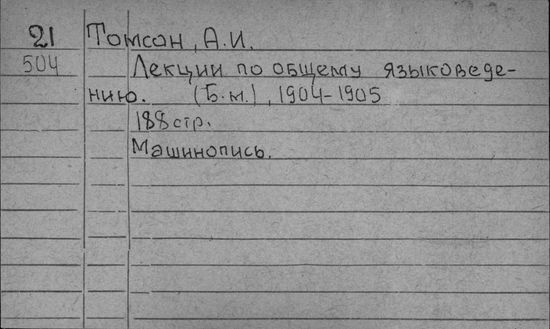 21 Томсон, А.И.
504 Лекции по общему языковеде-
нию. (Б.м.), 1904-1905
188 стр.
Машинопись.